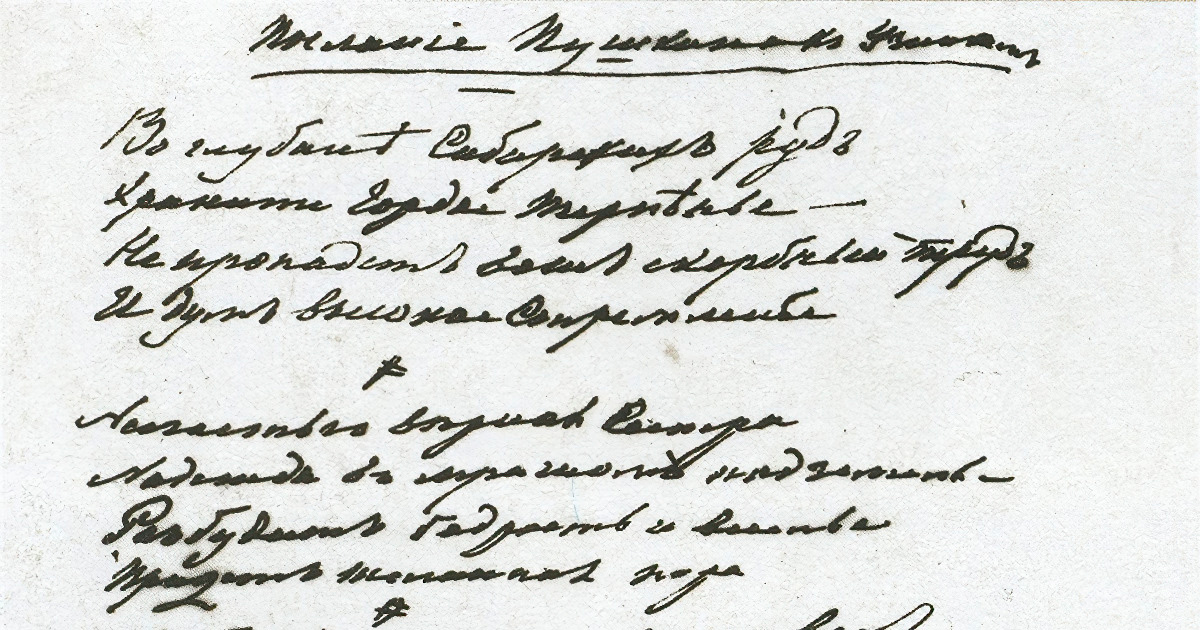 Посланіе Пушкина къ Узникам
Во глубинѣ Сибирскихъ рудъ
Храните гордое терпѣнье —
Не пропадетъ вашъ скорбный трудъ
И думъ высокое стремленье
Несчастью вѣрная сестра
Надежда въ мрачномъ подземельи
Разбудитъ бодрость и веселье
Придетъ желанная пора